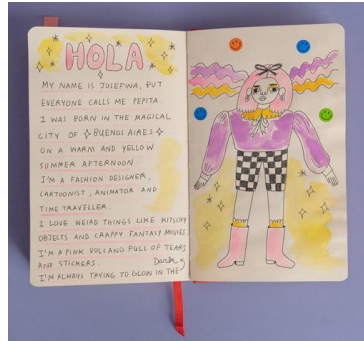 HOLA
MY NAME IS JOSEPWA, BUT
EVERYONE CALLS ME PEPITA.
I WAS BORN IN THE MAGICAL
CITY OF BUENOS AIRES
ON A WARM AND YELLOW
SUMMER AFTERNOON.
I'M A FASHION DESIGNER,
CARTOONIST, ANIMATOR AND
TIME TRAVELLER.
I LOVE WEIRD THINGS LIKE KITSCHY
OBJETS AND CRAPPY FANTASY MOVIES.
I'M A PINK VOLCANO FULL OF TEARS
AND STICKERS. Dark
I'M ALWAYS TRYING TO GLOW IN THE